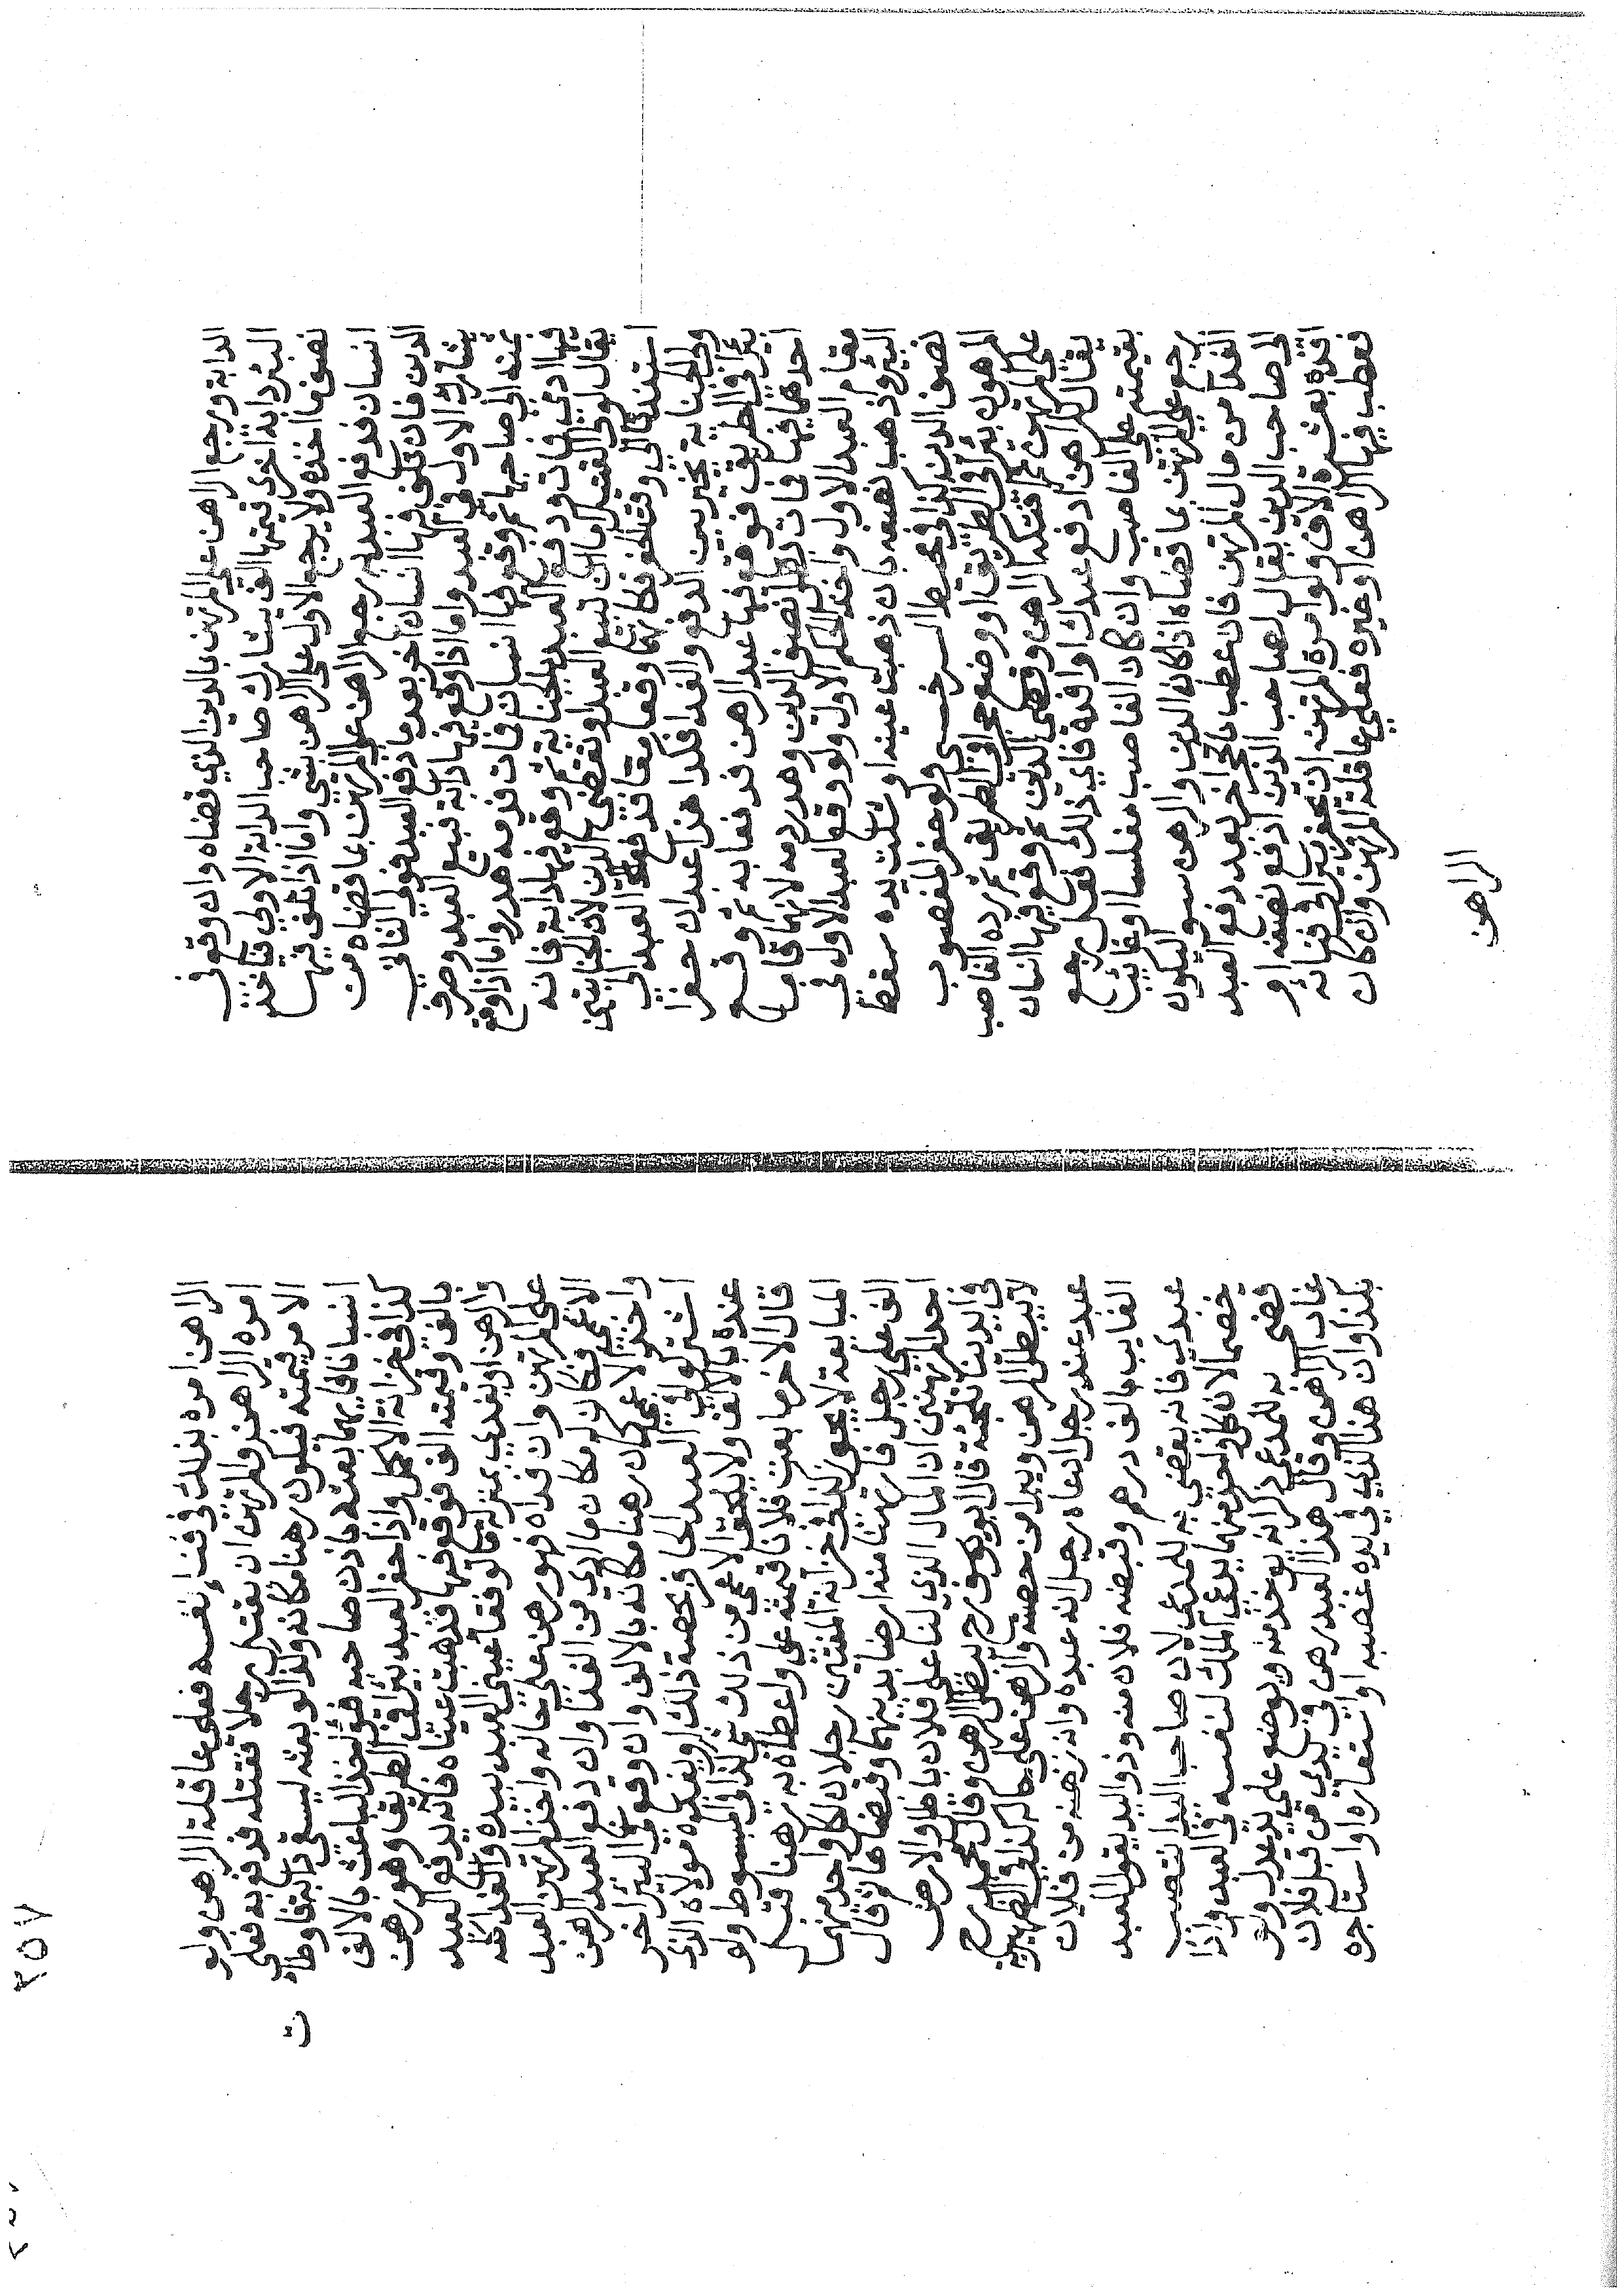 الدابة ورجع الراهن على المرتهن بالدين الذي قضاه وان وقع في
البئر دابة اخرى قيمتها الف يشارك صاحب الدابة الاولى فيأخذ
نصف ما اخذه ولا يرجع الاول على الراهن بشي واما اذا تلف فيها
انسان فدفع العبد به رجع الراهن على المرتهن بما قضاه من
الدين فان تلف فيها انسان اخر بعد ما دفع العبد فولي الثاني
يشارك الاول في العبد واما اذا وقع فيها دابة فبيع العبد وصرف
ثمنه الى صاحبها ثم وقع فيها انسان فمات فدمه هدر واما اذا وقع
فيها ادمي فمات ودفع العبد بالجناية ثم وقع فيها دابة فانه
يقال لولي القتيل اما ان تبيع العبد وتقضي الدين لان الجنايتين
استندتا الى وقت الحفر فكانهما وقعتا معا فيدفع العبد الى
ولي الجناية يخير بين الدفع والفدا فكذا هذا عبدان حفرا
بئرا في الطريق فوقع فيها عبد الرهن فدفعا به ثم وقع
احدهما فيها فمات بطل نصف الدين وهدر دمه لانهما قاما
مقام العبد الاول واخذ الحكم الاول ولو وقع العبد الاول في
البئر وذهب نصفه بان ذهبت عينه او شلت يده سقط
نصف الدين كذا في محيط السرخسي ولو حفر المغصوب
المرهون بئرا في الطريق او وضع حجرا في الطريق ثم رده الغاصب
على المرتهن ثم افتكه الراهن وقضى الدين ثم وقع فيها انسان
يقال للراهن ادفع عبدك او افده فاي ذلك فعل رجع
بقيمته على الغاصب وان كان الغاصب مفلسا او غائبا
رجع على المرتهن بما قضاه اذا كان الدين والرهن سوا ليكون
الفدا من مال المرتهن فان عطب بالحجر اخر بعد دفع العبد
الى صاحب الدين يقال لصاحب الدين ادفع نصفه او
افده بعشرة الاف ولو امره المرتهن ان يحفر بئرا في فنائه
فعطب فيها الراهن او غيره فعلى عاقلة المرتهن وان كان
الراهن
الراهن امره بذلك في فنا نفسه فعلى عاقلة الراهن ولو
امره الراهن والمرتهن ان يقتل رجلا فقتله فدفع به فعلى
الامر قيمته فيكون رهنا مكانه ولذا لو بعثه ليسقي دابته فاوطأت
انسانا فايهما بعثه باذن صاحبه فيؤخذ الباعث بالالف
كذا في خزانة الاكمل واذا حفر العبد بئرا في الطريق وهو رهن
بالف وقيمته الف فوقع فيها فذهبت عيناه فانه يدفع العبد
والرهن او يفدي بمنزلة ما لو فقأ عيني العبد بيده والفدا كله
على المرتهن وان فداه فهو رهن على حاله واخذ المرتهن العبد
الاعمى فكان له مكان ما ادى من الفدا وان دفع العبد الرهن
واخذ الاعمى كان رهنا مكانه بالالف وان وقع في البئر اخر
اشتركوا في العبد الحافر بحصة ذلك او يفديه مولاه الذي
عنده بالالف ولا يلحق الاعمى من ذلك شي كذا في المبسوط ولو
قال الاخر ما بعت فلانا قيمته علي واعطاه به رهنا قبل
المبايعة لا يجوز كذا في خزانة المفتين رجلان لكل واحد منهما
الف على رجل فارتهنا منه ارضا بدينهما وقبضاها ثم قال
احد المرتهنين ان المال الذي لنا على فلان باطل والارض
في ايدينا تلجئة قال ابو يوسف رح يبطل الرهن وقال محمد رح
لا يبطل الرهن ويبرا من حصته والرهن على حاله كذا في الظهيرية
عبد عند رجل ادعاه رجل انه عبده وانه رهنه من فلان
الغايب بالف درهم وقبضه فلان منه وذو اليد يقول العبد
عبدي فانه يقضى به للمدعي لان صاحب اليد انتصب
خصما لان كل واحد منهما يدعي الملك لنفسه في العبد واذا
قضى به للمدعي ذكر انه يوخذ منه ويوضع على يد عدل ولو
غاب الراهن وقال هذا العبد رهن في يدي من قبل فلان
بكذا وان هذا الذي في يده غصبه او استعاره او استاجره
ن
٢٥٧